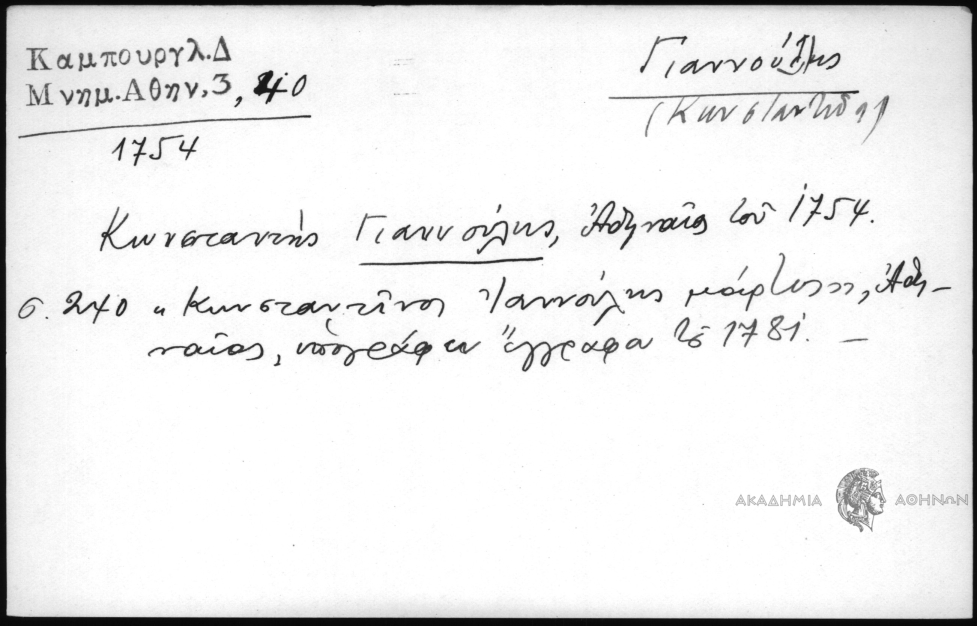 Καμπουργλ.Δ
Μνημ.Αθην,3, 240
1754
Γιαννούλης
(Κωνσταντῖνος)
Κωνσταντής Γιαννούλης, Ἀθηναῖος τοῦ 1754.
σ. 240 " Κωνσταντῖνος Γιαννούλης μάρτυς, Ἀθη-
ναῖος, ὑπογράφει ἔγγραφα τοῦ 1781. —
ΑΚΑΔΗΜΙΑ ΑΘΗΝΩΝ